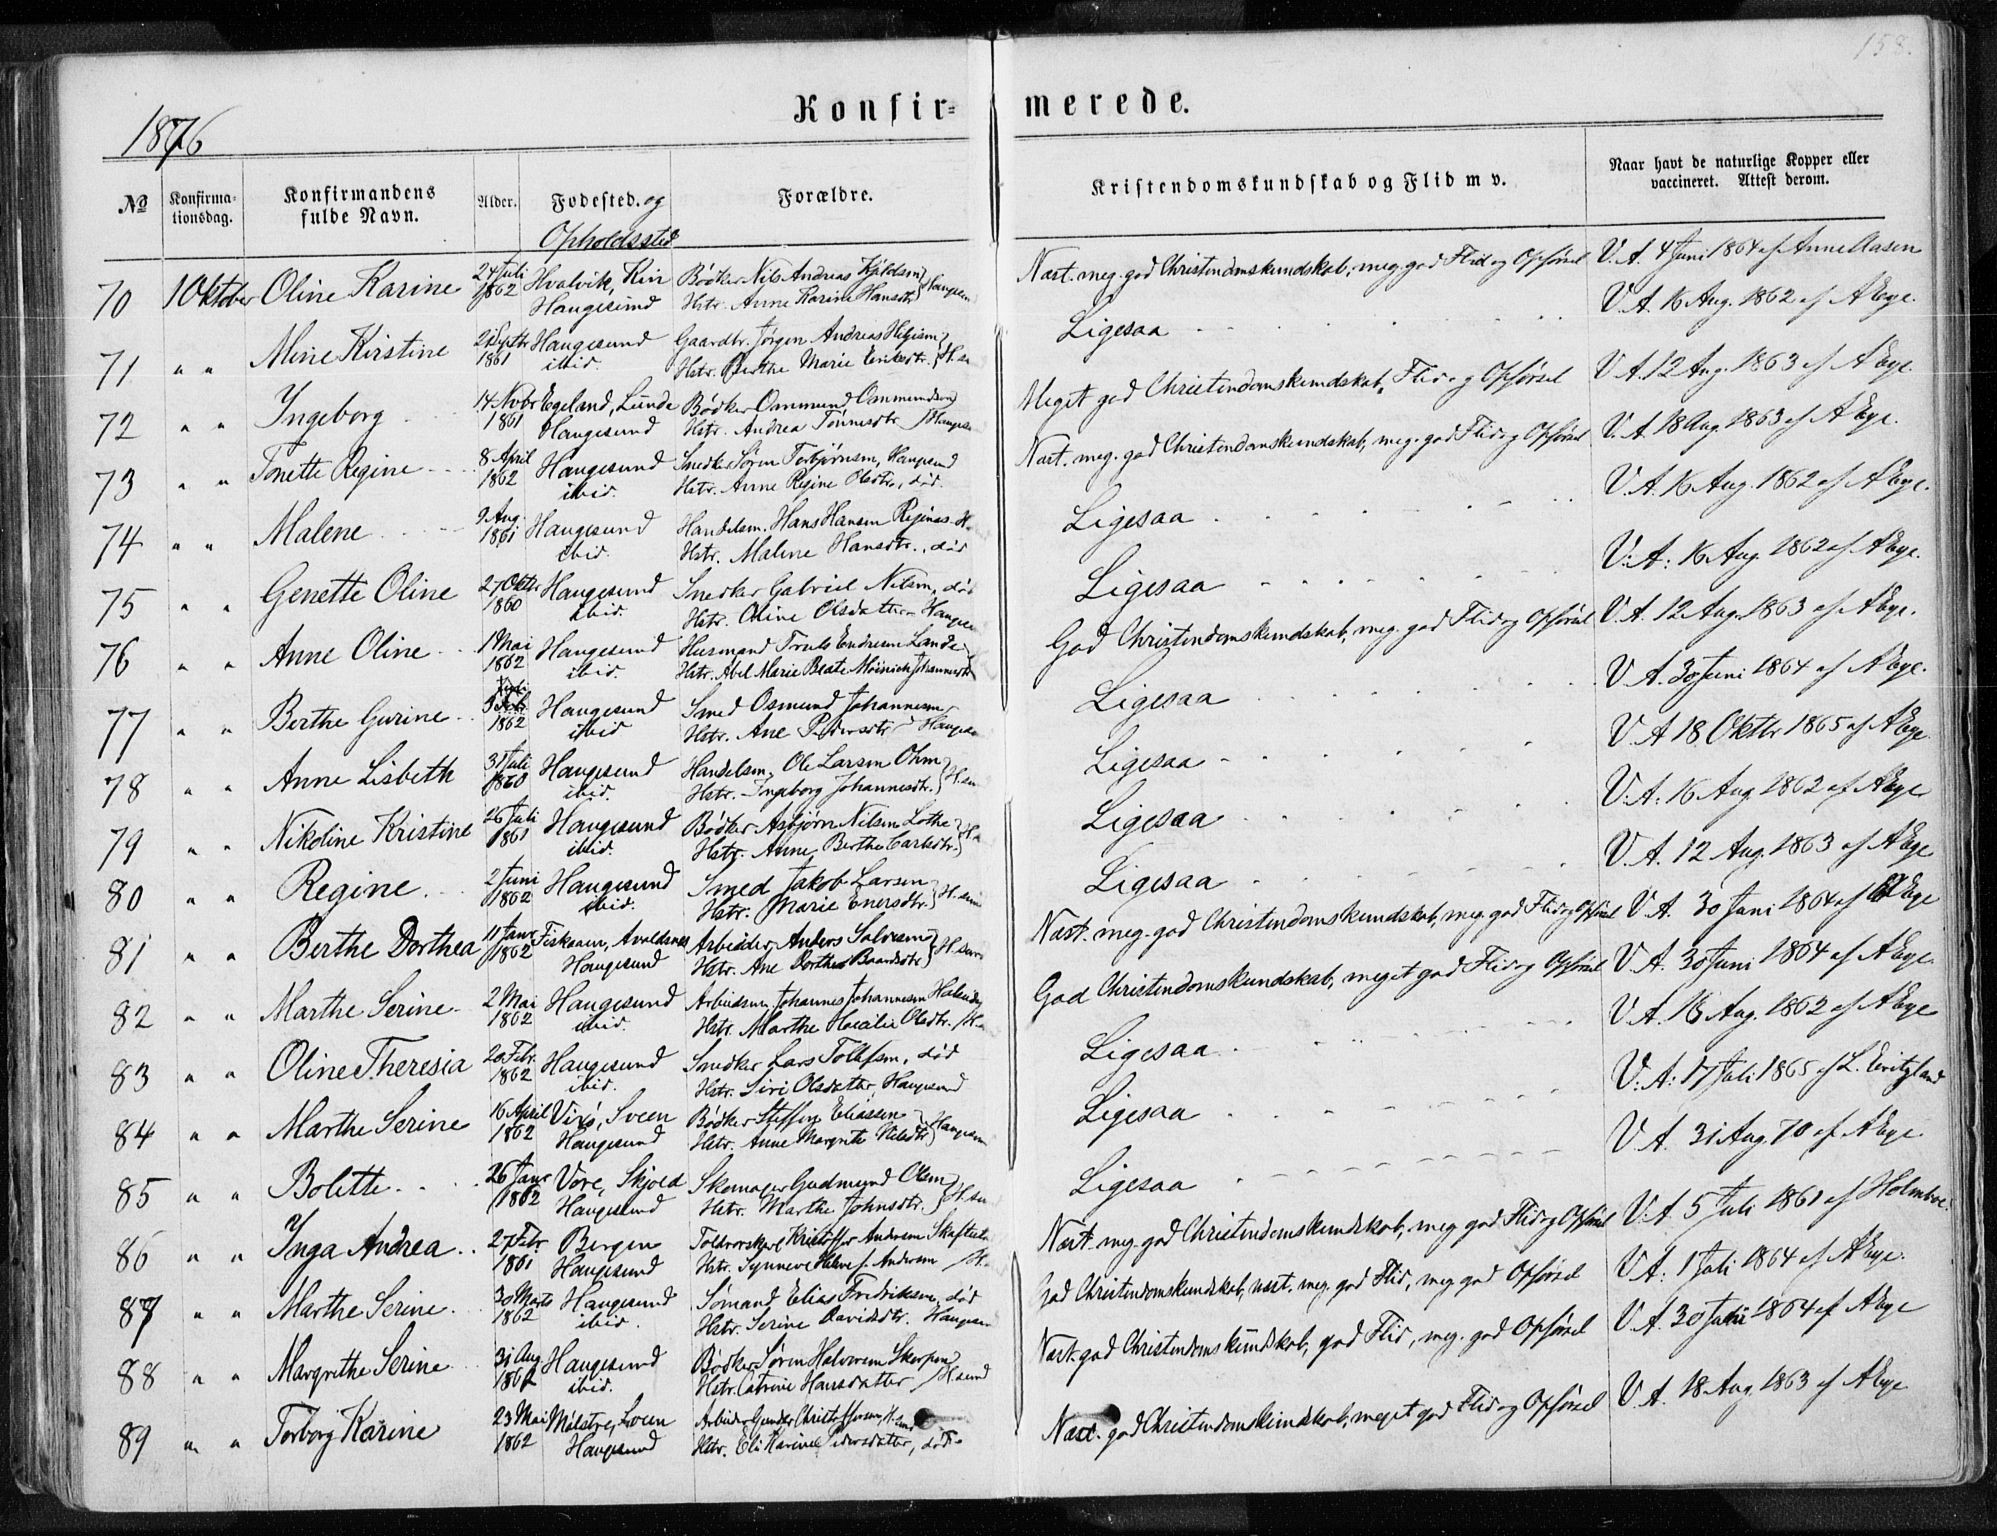 158.
Konfir= merede.
1876
№ Konfirma-tionsdag. Konfirmandens fulde Navn. Alder. Fødested. og Opholdssted Forældre. Kristendomskundskab og Flid m v. Naar havt de naturlige Kopper eller vaccineret. Attest derom.
70 1 Oktober Oline Karine 24 Juli Hvalvik, Kin Bødker Nils Andreas Kjeldsen Nært. meg. god Christendomskundskab, meg. god Flid og Opførsel V. A. 4 Juni 1864 af Anne Aasen
1862 Haugesund Hstr. Anne Karine Hansdtr.
71 " " Mine Kirstine 21 Septbr Haugesund Gaardbr. Jørgen Andreas Ligesaa V. A. 16 Aug. 1862 af AEge.
1861 ibid. Hstr. Berthe Marie Eriksdtr. H.su
72 " " Ingeborg 14 Novbr Egeland, Lunde Bødker Ommund Ommundsen Meget god Christendomskundskab, Flid og Opførsel V. A. 12 Aug. 1863 af AEge
1861 Haugesund Hstr. Andrea Tønnesdtr
73 " " Tonette Regine 8 April Haugesund Snedker Søren Torbjørnsen, Haugesund Nært. meg. god Christendomskundskab, meg. god Flid og Opførsel V. A. 18 Aug. 1863 af AEge.
1862 ibid. Hstr. Anne Regine Olsdtr., død.
74 " " Malene 9 Aug. Haugesund Handelsm. Hans Hansen Ligesaa V. A. 16 Aug. 1862 af AEge.
1861 ibid. Hstr. Malene Hansdtr., død
75 " " Genette Oline 27 Oktbr Haugesund Snedker Gabriel Nilsen, død Ligesaa V. A: 16 Aug. 1862 af AEge.
1860 ibid. Hstr. Oline Olsdatter
76 " " Anne Oline 1 Mai Haugesund Husmand Truls Endresen Lande God Christendomskundskab, meg. god Flid og Opførsel V. A. 12 Aug. 1863 af AEge.
1862 ibid. Hstr. Abel Marie Beate Johannesdtr
77 " " Berthe Gurine Haugesund Smed Osmund Johannesen Ligesaa V. A. 30 Juni 1864 af AEge.
1862 ibid Hstr. Ane Pedersdtr
78 " " Anne Lisbeth 31 Juli Haugesund Handelsm. Ole Larsen Ohm Ligesaa V. A 18 Oktbr 1865 af AEge.
1860 ibid. Hstr. Ingeborg Johannesdtr. H.su
79 " " Nikoline Kristine 26 Juli Haugesund Bødker Asbjørn Nilsen Lothe Ligesaa V. A: 16 Aug 1862 af AEge
1861 ibid. Hstr. Anne Berthe Carlsdtr.
80 " " Regine 2 Juni Haugesund Smed Jakob Larsen Ligesaa V. A. 12 Aug. 1863 af AEge
1862 ibid. Hstr. Marie Enersdtr.
81 " " Berthe Dorthea 11 Janr Avaldsnes Arbeider Anders Salvesen Nært. meg. god Christendomskundskab, meg. god Flid og Opførsel V. A. 30 Juni 1864 af AEge
1862 Haugesund Hstr. Ane Dorthea Baardsdtr
82 " " Marthe Serine 2 Mai Haugesund Johannes Johannesen God Christendomskundskab, meget god Flid og Opførsel V. A. 30 Juni 1864 af AEge.
1862 ibid. Hstr. Marthe Olsdtr.
83 " " Oline Theresia 20 Febr. Haugesund Snedker Lars Tollefsen, død Ligesaa V. A. 16 Aug. 1862 af AEge
1862 ibid. Hstr. Siri Olsdatter, Haugesund
84 " " Marthe Serine 16 April Sveen Bødker Steffen Eliassen Ligesaa V: A: 17 Juli 1865 af L.
1862 Haugesund Hstr. Anne Margrete
85 " " Bolette 26 Janr Vore, Skjold Skomager Gudmund Olsen Ligesaa V. A. 31 Aug. 70 af AEge.
1862 Haugesund Hstr. Marthe Johnsdtr. H.su
86 " " Inga Andrea 27 Febr Bergen Kristoffer Andersen Nært. meg. god Christendomskundskab, meg god Flid og Opførsel V. A. 5 Juli 1861 af Holmboe.
1861 Haugesund Hstr. Synneve Helene f. Andersen
87 " " Marthe Serine 30 Marts Haugesund Sømand Elias Fredriksen, død God Christendomskundskab, nært. meg. god Flid, meg god Opførsel V. A: 1 Juli 1864 af AEge.
1862 ibid. Hstr. Serine Davidsdtr.
88 " " Margrethe Serine 31 Aug Haugesund Bødker Søren Halvorsen Nært. god Christendomskundskab, god Flid, meg. god Opførsel V. A. 30 Juni 1864 af AEge
ibid. Hstr. Catrine Hansdatter H.sund
89 " " Torborg Karine 23 Mai Sveen Arbeider Gunder Christoffersen H.sund Nært. god Christendomskundskab, meget god Flid og Opførsel V. A. 18 Aug. 1863 af AEge
1862 Haugesund Hstr. Eli Karine Pedersdatter, død